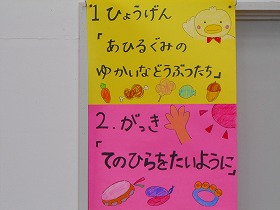 1 ひょうげん
「あひるぐみの
ゆかいなどうぶつたち」
2.がっき
「てのひらをたいように」